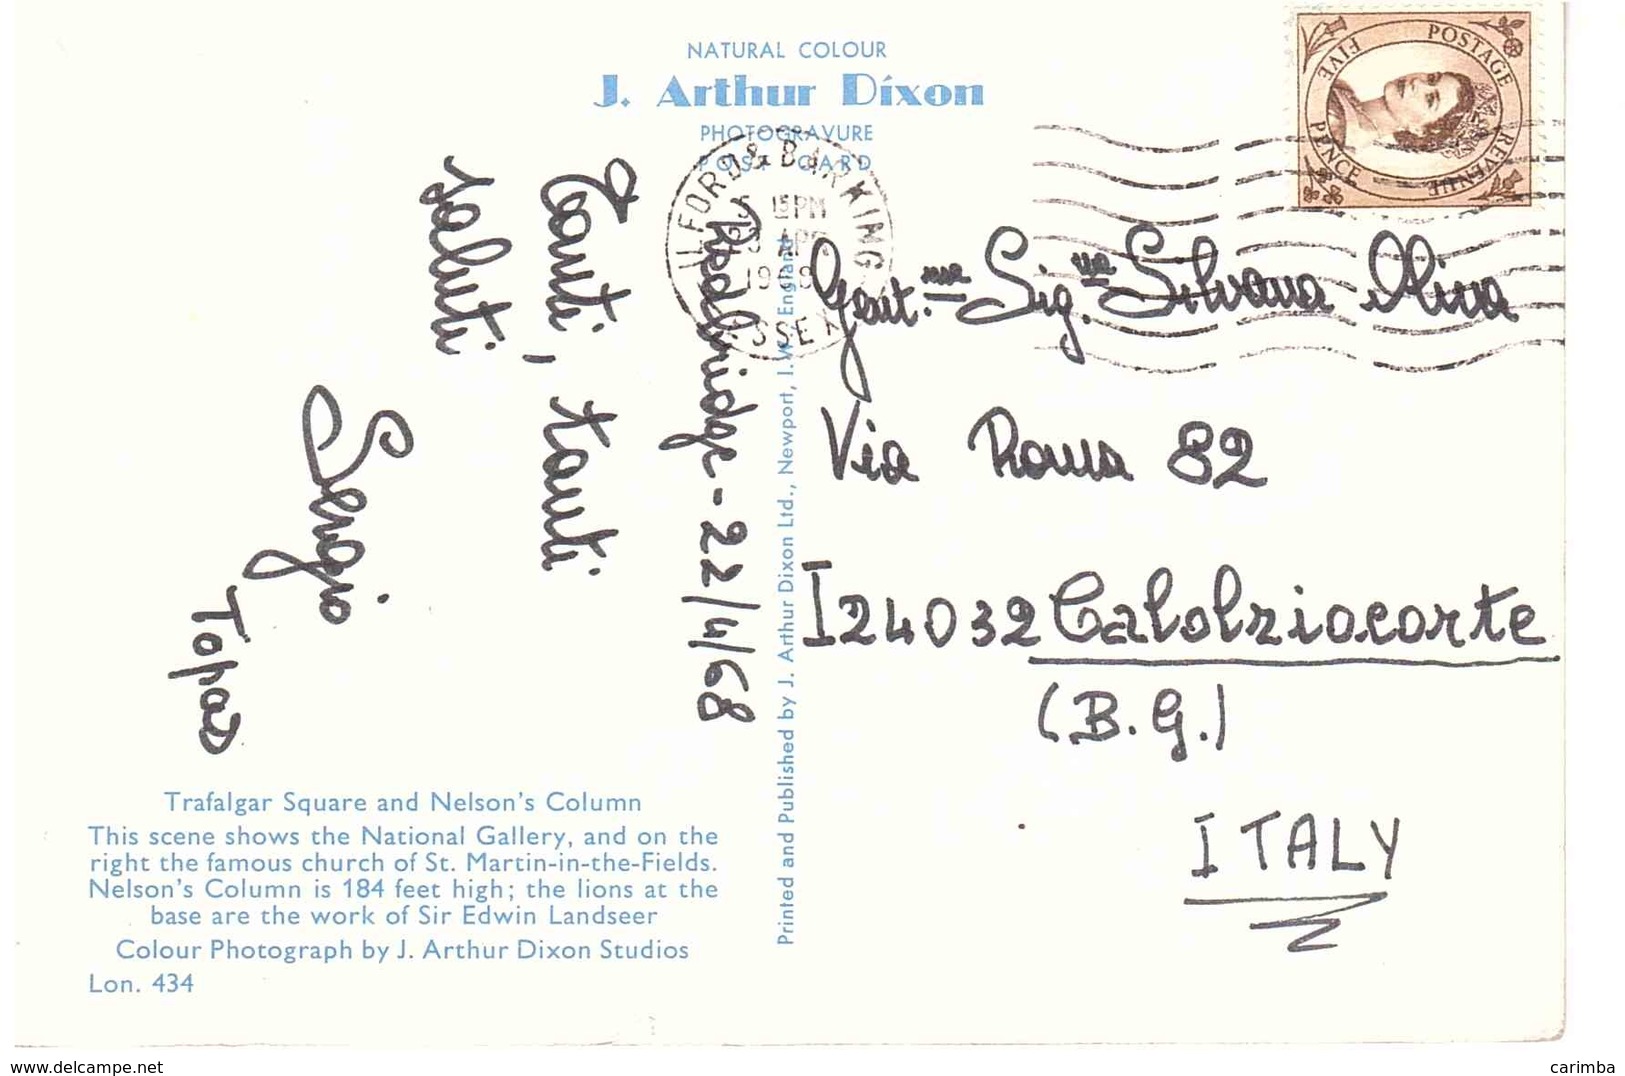 NATURAL COLOUR
J. Arthur Dixon
PHOTOGRAVURE
POST CARD
FIVE PENCE POSTAGE REVENUE
ILFORD & BARKING
5 15PM
APR
1968
ESSEX
Redbridge - 22/4/68
Tanti, tanti
saluti
Sergio
Gent.ma Sig.na Silvana
Via Roma 82
I 24032 Calolziocorte
(B.G.)
ITALY
Printed and Published by J. Arthur Dixon Ltd., Newport, I.W. England
Trafalgar Square and Nelson's Column
This scene shows the National Gallery, and on the
right the famous church of St. Martin-in-the-Fields.
Nelson's Column is 184 feet high; the lions at the
base are the work of Sir Edwin Landseer
Colour Photograph by J. Arthur Dixon Studios
Lon. 434
www.delcampe.net
carimba